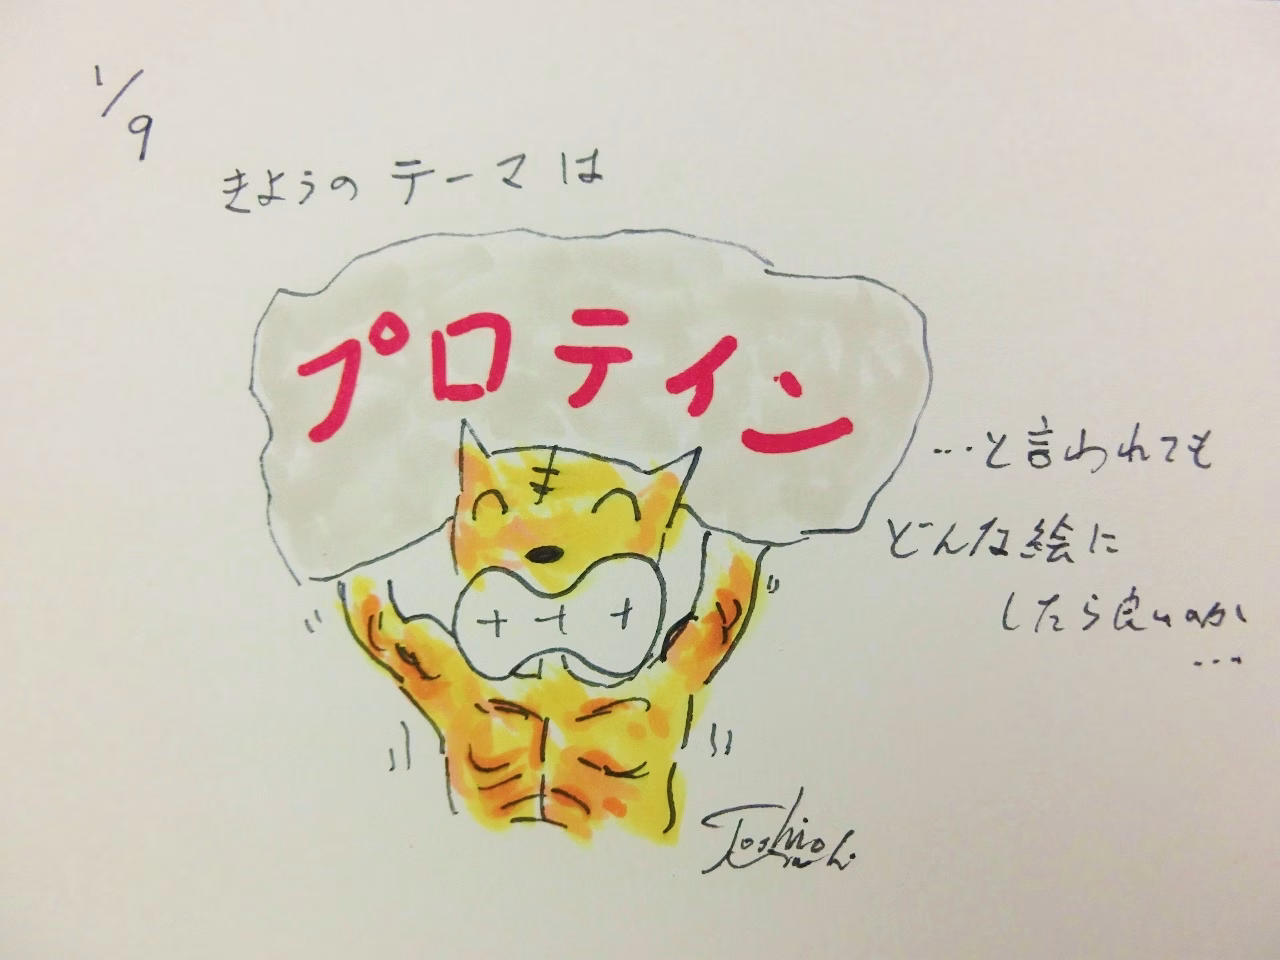 1/9
きょうのテーマは
プロテイン
…と言われても
どんな絵に
したら良いのか
…
Toshio